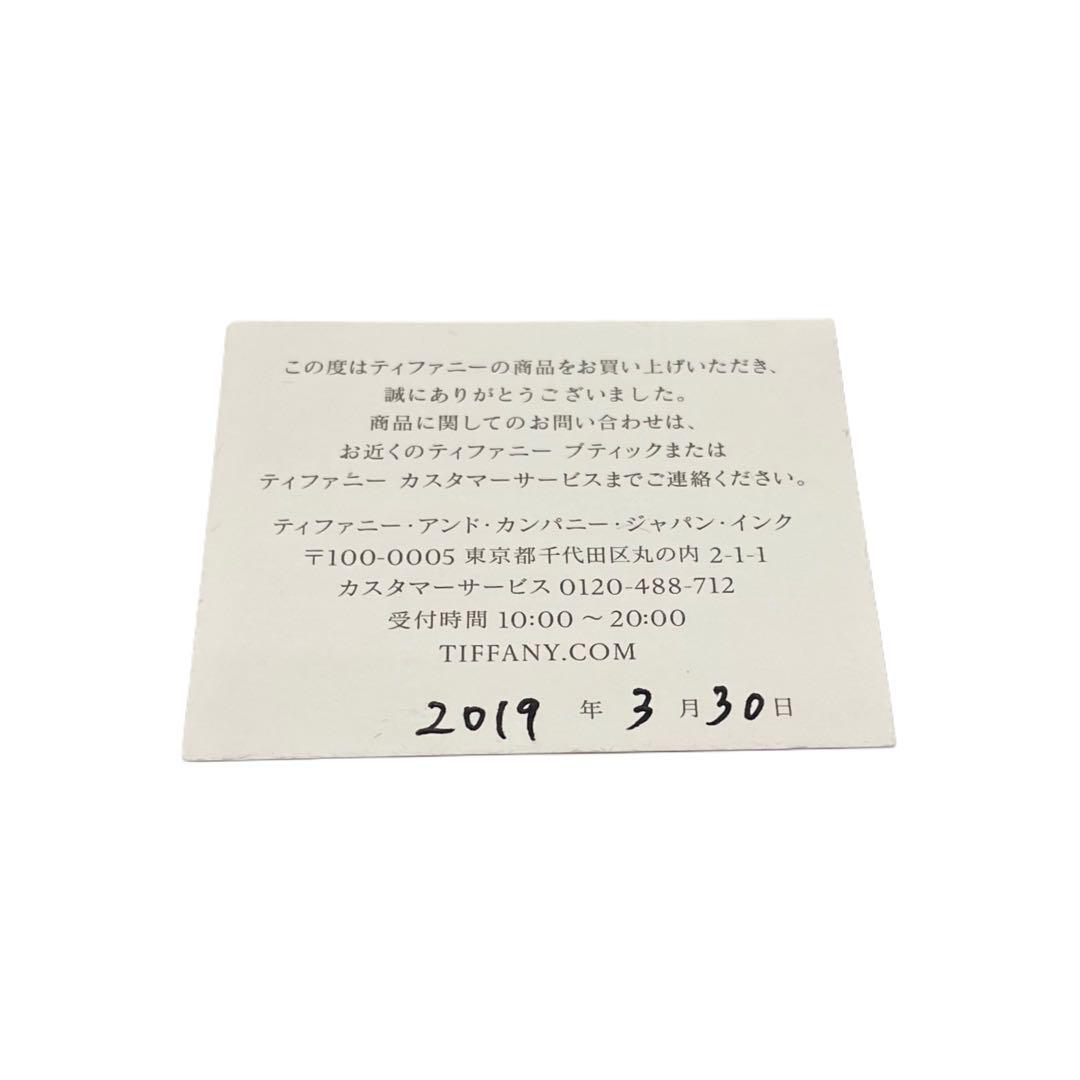 この度はティファニーの商品をお買い上げいただき、
誠にありがとうございました。
商品に関してのお問い合わせは、
お近くのティファニー ブティックまたは
ティファニー カスタマーサービスまでご連絡ください。
ティファニー・アンド・カンパニー・ジャパン・インク
〒100-0005 東京都千代田区丸の内 2-1-1
カスタマーサービス 0120-488-712
受付時間 10:00 〜 20:00
TIFFANY.COM
2019 年 3 月 30 日